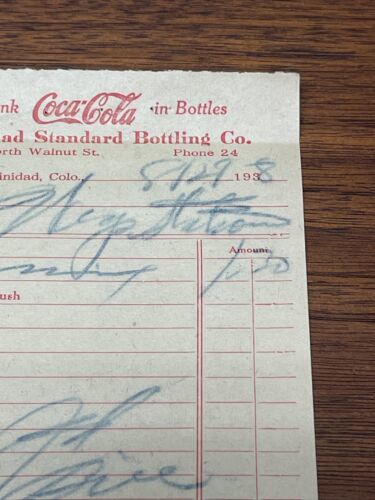 nk Coca-Cola in Bottles
ad Standard Bottling Co.
orth Walnut St. Phone 24
inidad, Colo., 8/29 1938
Station
Amount
1.20
ush